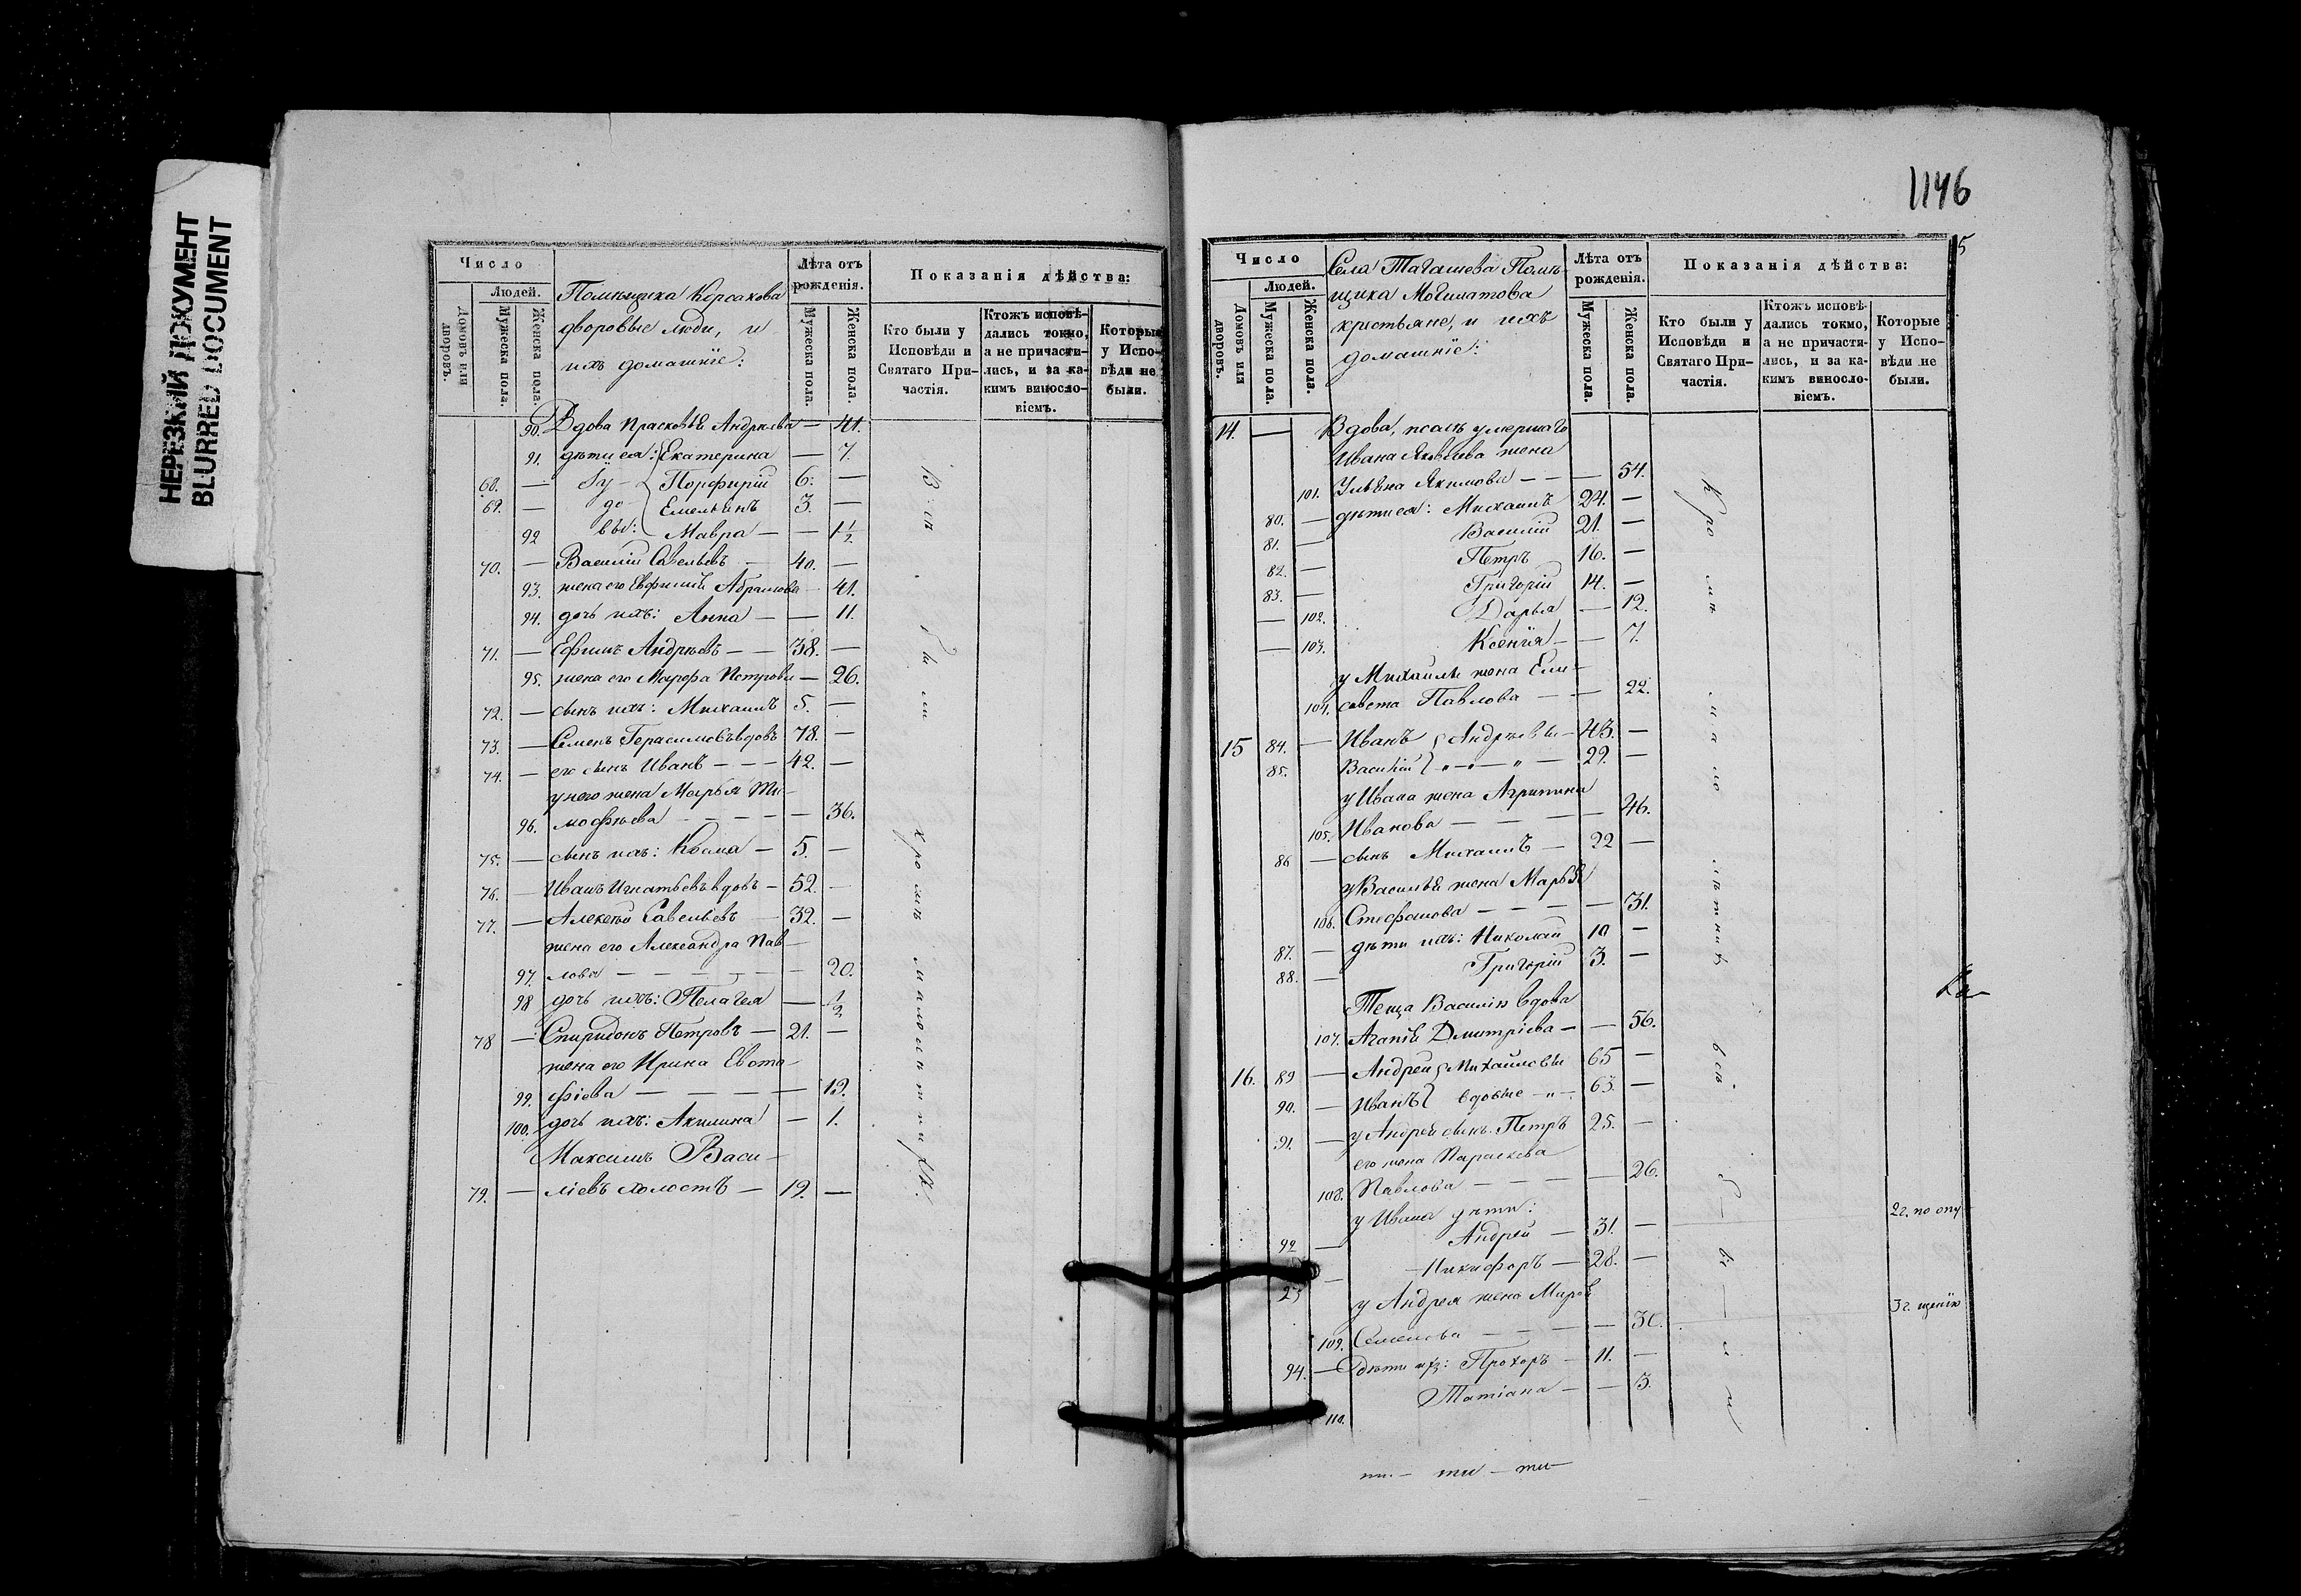 НЕРЕЗКИЙ ДОКУМЕНТ
BLURRED DOCUMENT
Число
Людей.
Домовъ или дворовъ.
Мужеска пола.
Женска пола.
Помѣщика Корсакова
дворовые люди, и
ихъ домашніе:
Лѣта отъ рожденія.
Мужеска пола.
Женска пола.
Показанія дѣйства:
Кто были у Исповѣди и Святаго Причастія.
Ктожъ исповѣдались токмо, а не причастились, и за какимъ винословіемъ.
Которые у Исповѣди не были.
90. Вдова Прасковья Андреева — 41.
91. дѣти ея: Екатерина — 7.
68. — Ву- Порфирій 6. —
69. — до Емельянъ 3. —
92 вы: Мавра — — 1½
70. — Василій Савельевъ — 40. —
93. жена его Евфимія Абрамова — 41.
94. дочь ихъ: Анна — — 11.
71. — Ефимъ Андреевъ — — 38. —
95. жена его Марфа Петрова — 26.
72. — сынъ ихъ: Михаилъ 5. —
73. — Семенъ Герасимовъ вдовъ 78. —
74. — его сынъ Иванъ — — — 42. —
у него жена Марья Ти-
96. мофеева — — — — — 36.
75. — сынъ ихъ: Козма — 5. —
76. — Иванъ Игнатьевъ вдовъ — 52. —
77. — Алексѣй Савельевъ — 32. —
жена его Александра Пав-
97. лова — — — — — — 20.
98 дочь ихъ: Пелагея — ½
78 — Спиридонъ Петровъ — 21. —
жена его Ирина Евста-
99. фіева — — — — 19.
100. дочь ихъ: Акилина — 1.
Максимъ Васи-
79. — ліевъ холостъ — 19. —
Всѣ были кромѣ малолѣтнихъ.
1146
5
Число
Людей.
Домовъ или дворовъ.
Мужеска пола.
Женска пола.
Села Тагашева Помѣ-
щика
крестьяне, и ихъ
домашніе:
Лѣта отъ рожденія.
Мужеска пола.
Женска пола.
Показанія дѣйства:
Кто были у Исповѣди и Святаго Причастія.
Ктожъ исповѣдались токмо, а не причастились, и за какимъ винословіемъ.
Которые у Исповѣди не были.
14. — Вдова, умершаго
Ивана Яковлева жена
101. Ульяна Якимова — — — 54.
80. — дѣти ея: Михаилъ 24. —
81. — Василій 21. —
82. — Петръ 16. —
83. — Григорій 14. —
— 102. Дарья — 12.
— 103. Ксенія — — 7.
у Михаила жена Ели-
104. савета Павлова — — 22.
15 84. — Иванъ Андреевы — 43. —
85. Василій — 29. —
у Ивана жена Агрипина
105. Иванова — — — — 46.
86 — сынъ Михаилъ — 22 —
у Василья жена Марья
106. Стефанова — — — — 31.
87. — дѣти ихъ: Николай 10 —
88. — Григорій 3. —
Теща Василія вдова
107. Агапія Дмитріева — — 56.
16. 89 — Андрей Михайловы 65 —
90. — Иванъ вдовые — 63. —
91. — у Андрея сынъ Петръ 25. —
его жена Параскева
108. Павлова — — — — 26.
у Ивана дѣти:
92 — Андрей — 31. —
— Никифоръ — 28. —
у Андрея жена Марья
109. Семенова — — — — 30.
94. — дѣти ихъ: Прохоръ — 11. —
110. Татіана — — 3.
Кромѣ малолѣтнихъ всѣ были
2г. по опу-
3г. щенію